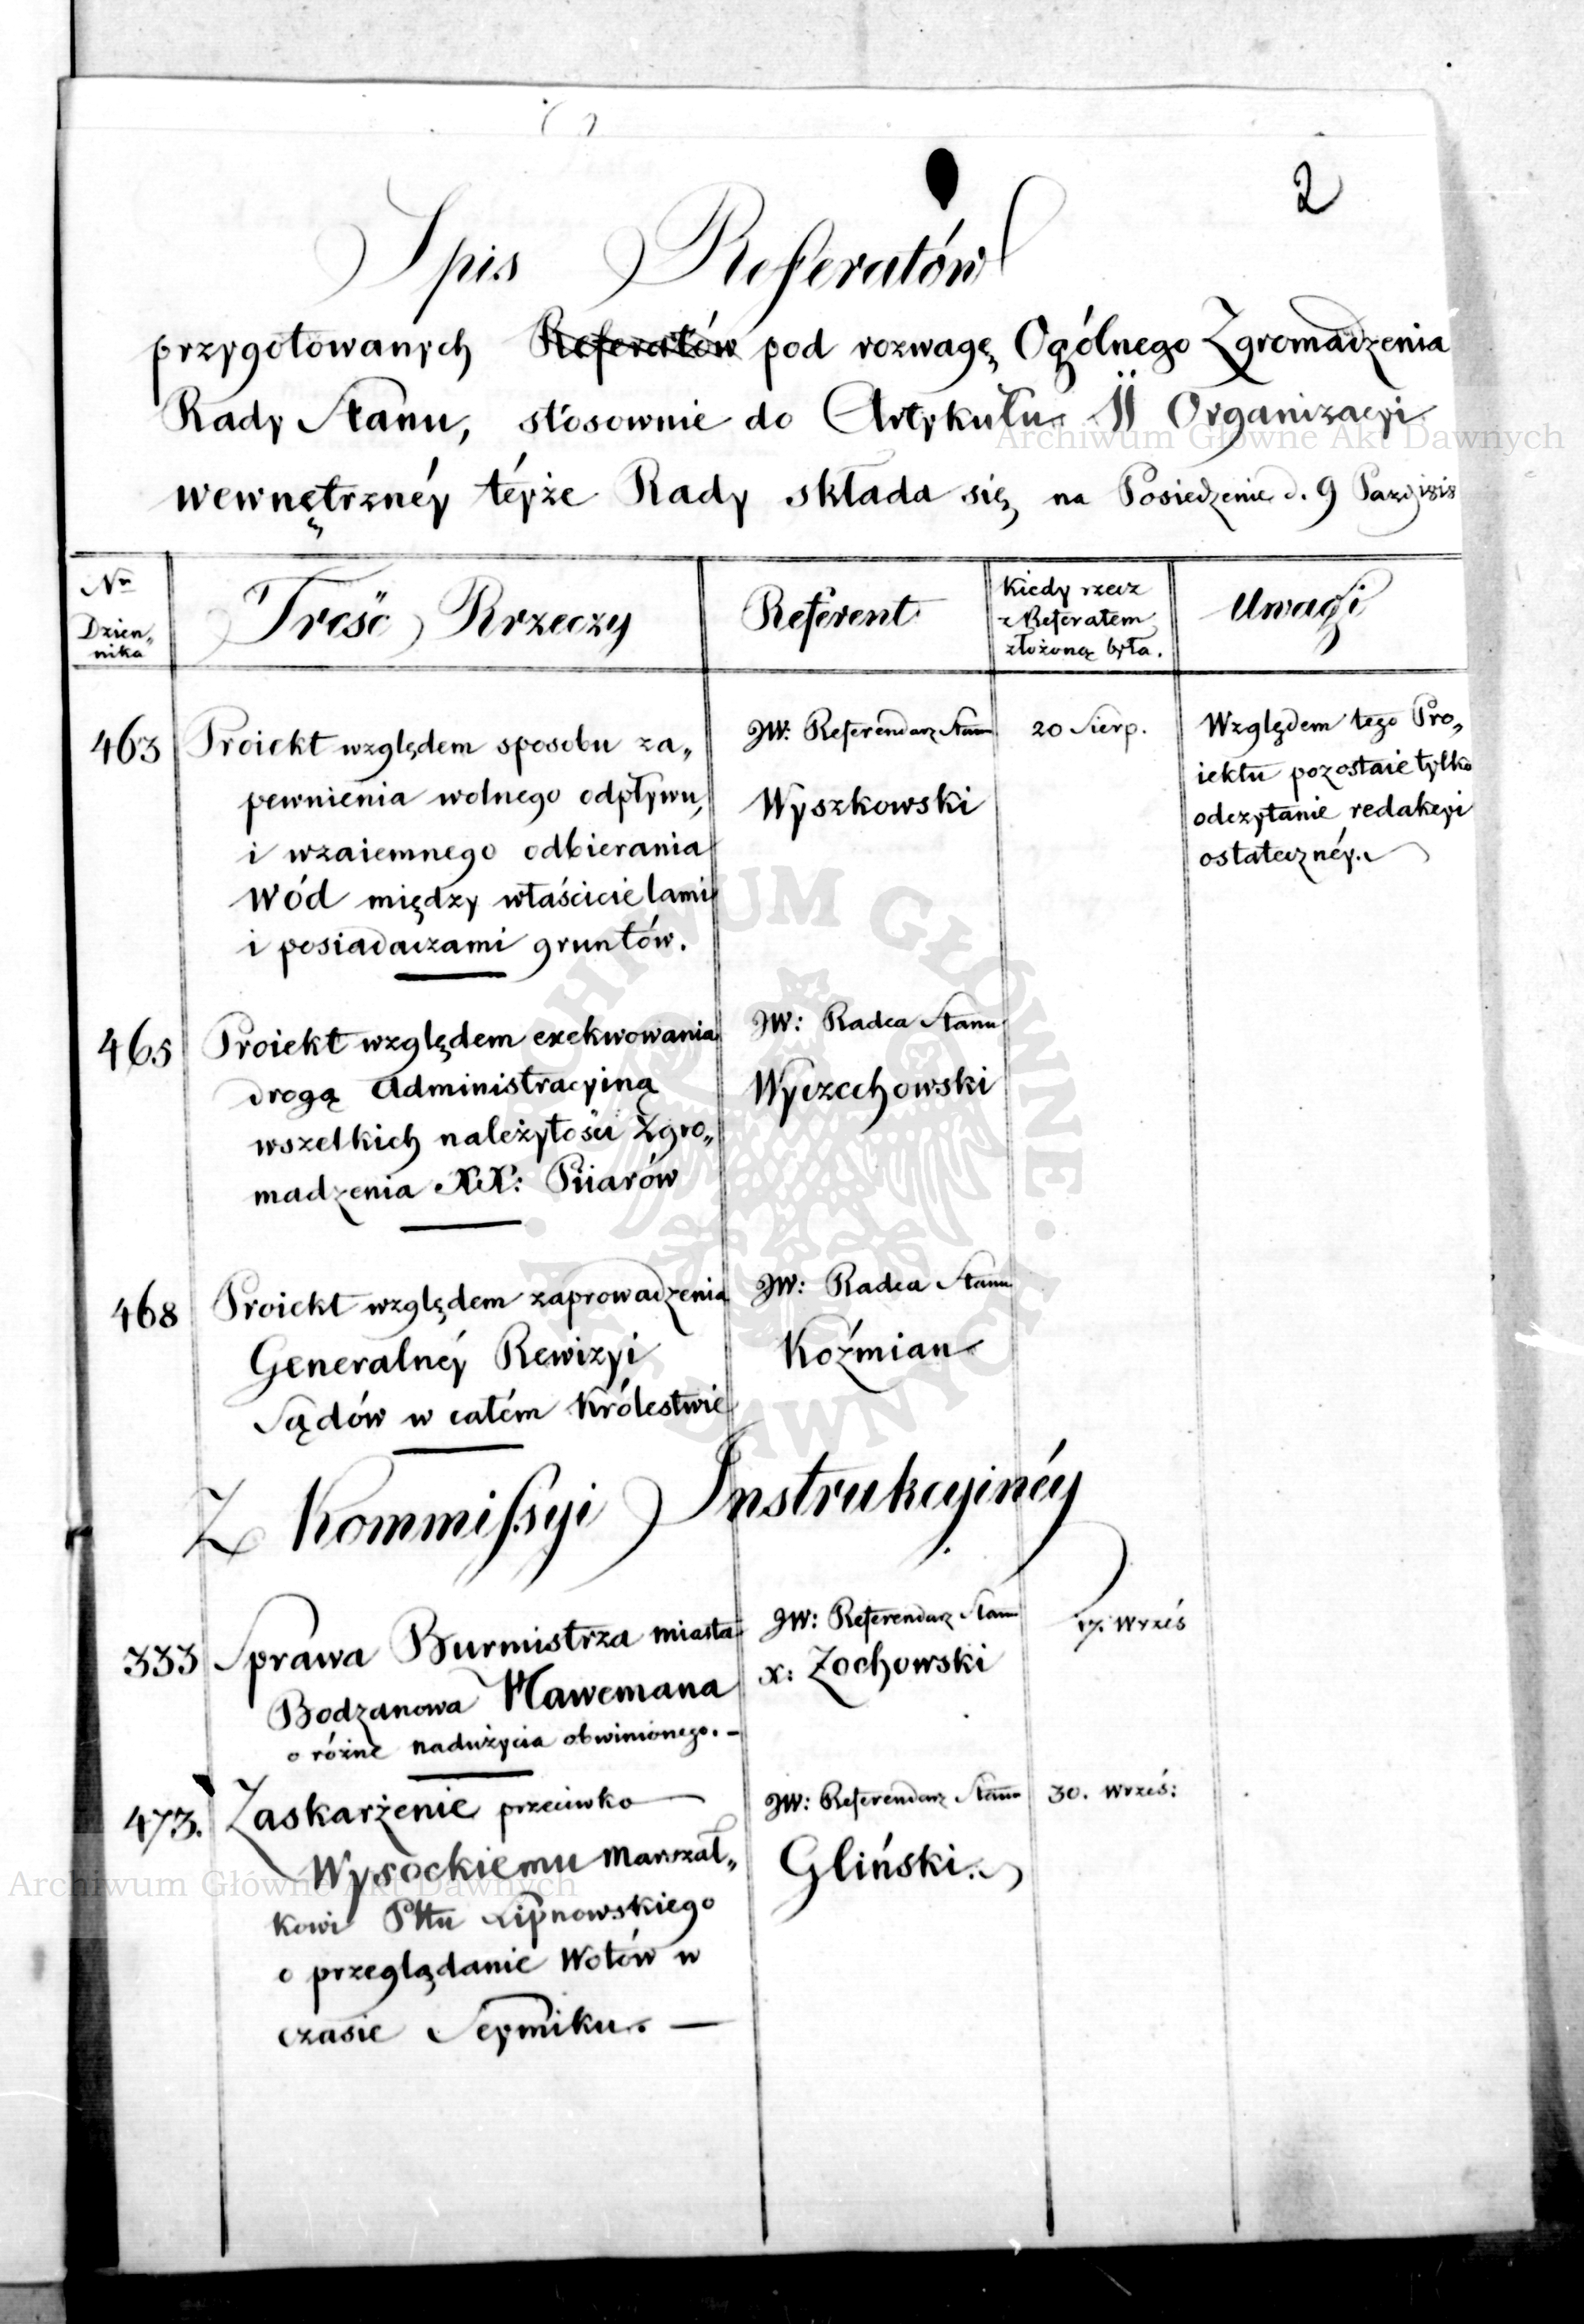 2
Spis Referatów
przygotowanych Referatów pod rozwagę Ogólnego Zgromadzenia
Rady Stanu, stosownie do Artykułu 11 Organizacyi
wewnętrznéy téyże Rady składa się na Posiedzenie d. 9 Pazdz 1818
Nr
Dzien„
nika
Treść Rzeczy
Referent
Kiedy rzecz
z Referatem
złożoną była.
Uwagi
463
Proiekt względem sposobu za„
pewnienia wolnego odpływu,
i wzaiemnego odbierania
Wód między właścicielami
i posiadaczami gruntów.
JW: Referendarz Stanu
Wyszkowski
20 Sierp.
Względem tego Pro„
iektu pozostaie tylko
odczytanie redakcyi
ostatecznéy.
465
Proiekt względem exekwowania
drogą Administracyiną
wszelkich należytości Zgro„
madzenia XX: Piiarów
JW: Radca Stanu
Wyczechowski
468
Proiekt względem zaprowadzenia
Generalnéy Rewizyi
Sądów w całém Królestwie
JW: Radca Stanu
Koźmian
Z Kommissyi Instrukcyinéy
333
Sprawa Burmistrza miasta
Bodzanowa Hawemana
o różne nadużycia obwinionego. –
JW: Referendarz Stanu
X: Zochowski
17. Wrześ
473.
Zaskarżenie przeciwko
Wysockiemu Marszał„
kowi Pttu Lipnowskiego
o przeglądanie Wotów w
czasie Seymiku. —
JW: Referendarz Stanu
Gliński.
30. Wrześ:
Archiwum Główne Akt Dawnych
Archiwum Główne Akt Dawnych
ARCHIWUM GŁÓWNE · AKT DAWNYCH ·